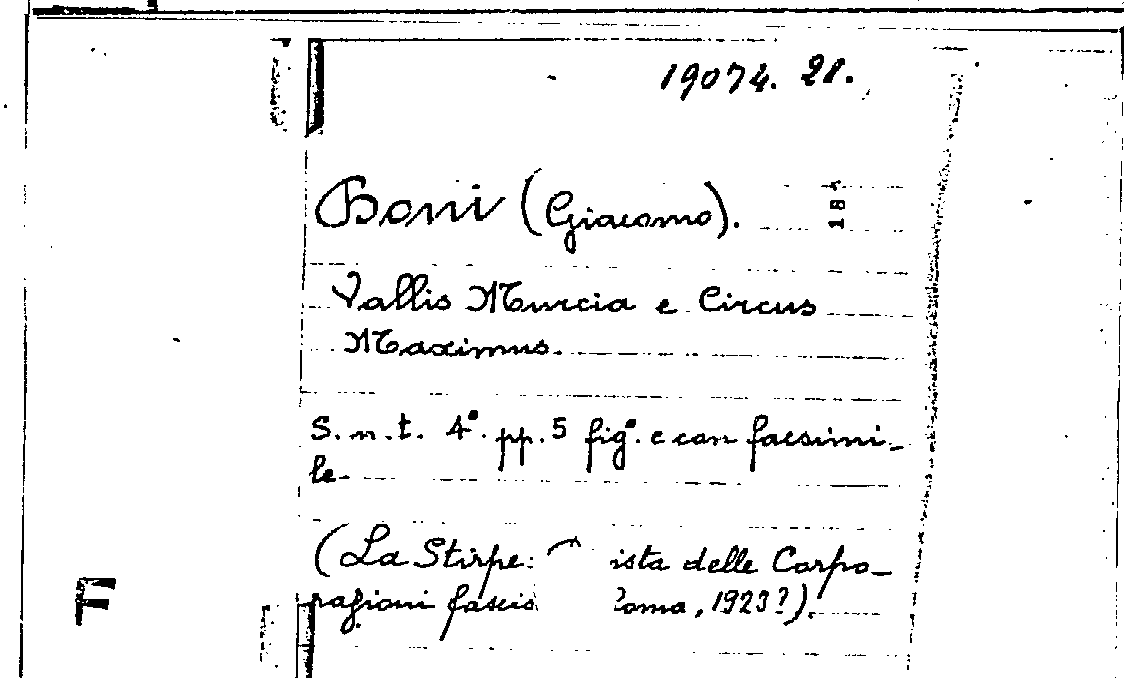 19074. 21.
Boni (Giacomo).
18
Vallis Murcia e Circus
Maximus.
S. n. t. 4°. pp. 5 fig°. e con facsimi-
le.
(La Stirpe: ista delle Corpo-
razioni fascis oma, 1923?).
F